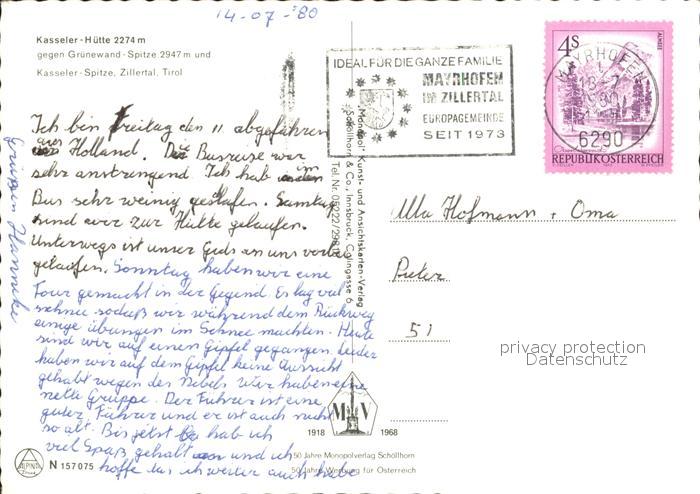 14-07-'80
Kasseler-Hütte 2274 m
gegen Grünewand-Spitze 2947 m und
Kasseler-Spitze, Zillertal, Tirol
IDEAL FÜR DIE GANZE FAMILIE
MAYRHOFEN
IM ZILLERTAL
EUROPAGEMEINDE
SEIT 1973
MAYRHOFEN
6290
4S
ALMSEE
REPUBLIK ÖSTERREICH
Ich bin Freitag den 11 abgefahren
aus Holland. Die Busreise war
sehr anstrengend Ich hab im
Bus sehr weinig geslafen. Samstag
sind wer zur Hütte gelaufen.
Unterwegs ist unser Gids an uns vorbei
gelaufen. Sonntag haben wir eine
Tour gemacht in der Gegend. Es lag viel
schnee sodaß wir während dem Rückweg
einige übungen im Schnee machten. Heute
sind wir auf einen Gipfel gegangen. leider
haben wir auf dem Gipfel keine Aussicht
gehabt wegen des Nebels. Wir haben eine
nette Gruppe. Der Führer ist eine
guter Führer und er ist auch nicht
so alt. Bis jetzt hab ich
viel Spaß gehabt und ich
hoffe das ich weiter auch habe
Monopol Kunst- und Ansichtskarten-Verlag
Schöllhorn & Co., Innsbruck,
Tel. Nr. 05222/
Ulla Hofmann + Oma
51
privacy protection
Datenschutz
M V
1918 1968
50 Jahre Monopolverlag Schöllhorn
50 Jahre Werbung für Österreich
ALPINA
N 157075